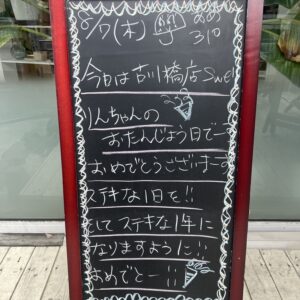 8/7(木)
310
今日は古川橋店Swe
りんちゃんの
おたんじょう日でー
おめでとうございまーす
ステキな1日を!!
そしてステキな1年に
なりますように!!
おめでとー!!